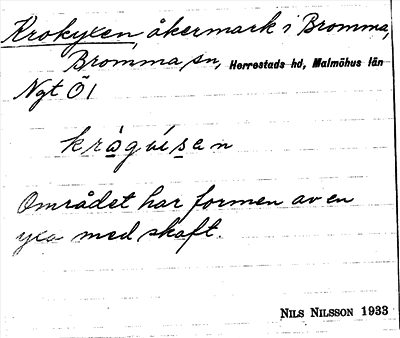 Krokyxen, åkermark i Bromma,
Bromma sn, Herrestads hd, Malmöhus län
Ngt Ö 1
krågvisen
Området har formen av en
yxa med skaft.
NILS NILSSON 1933